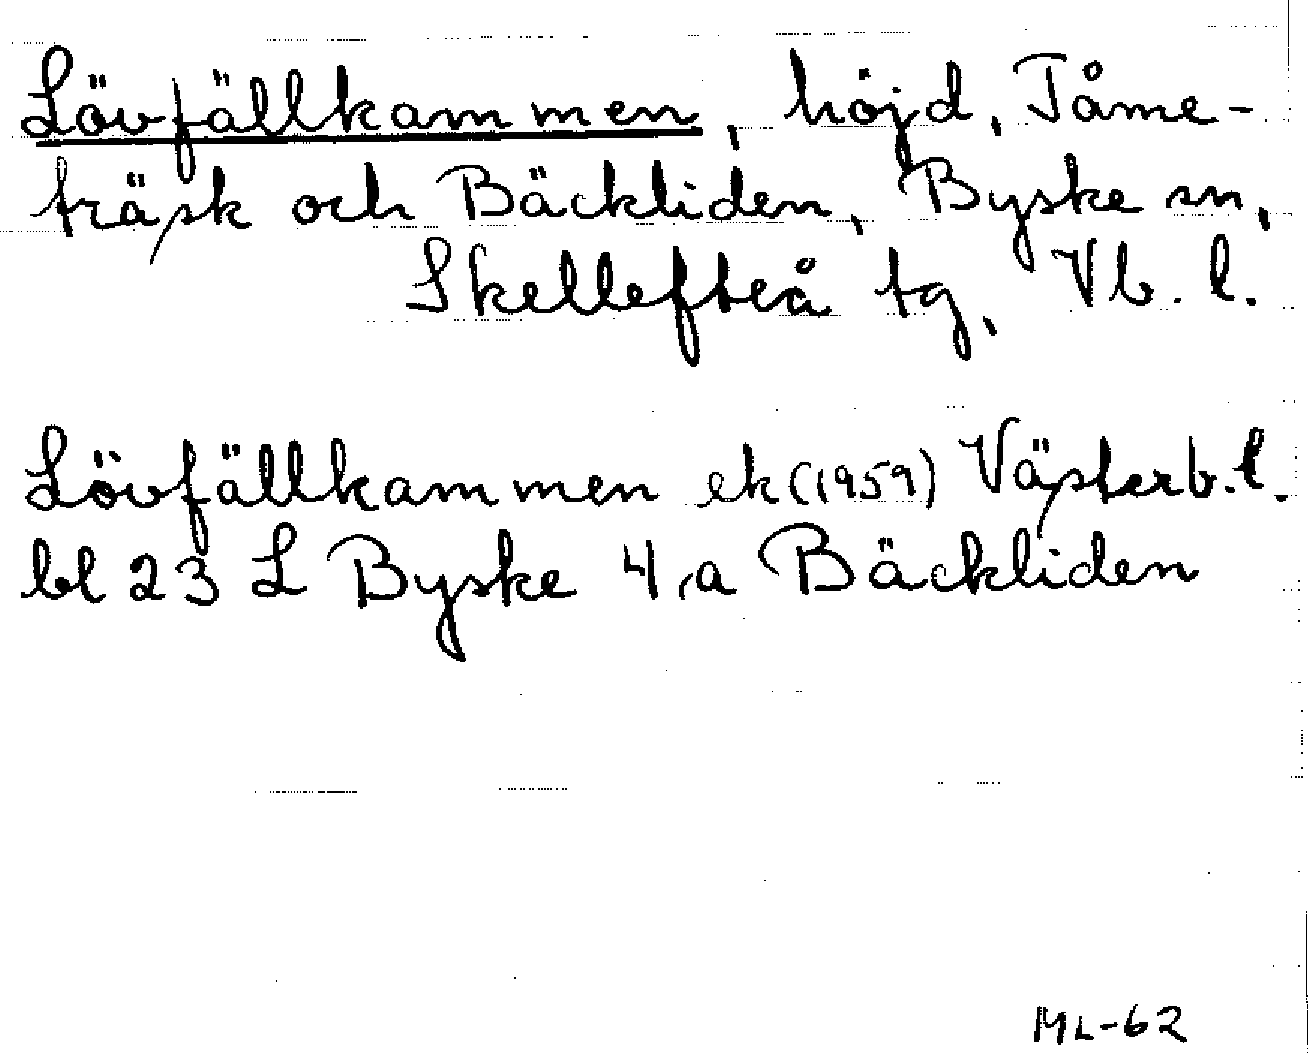 Lövfällkammen, höjd, Tåme-
träsk och Bäckliden, Byske sn,
Skellefteå tg, Vb. l.
Lövfällkammen ek (1959) Västerb. l.
bl 23 L Byske 4,a Bäckliden
ML-62